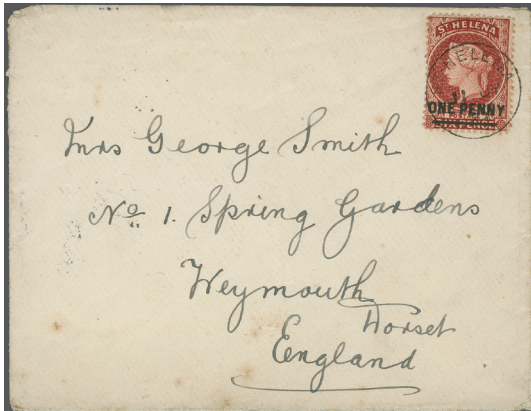 ST HELENA
HELENA
JU
ONE PENNY
SIX PENCE
Mrs George Smith
No 1. Spring Gardens
Weymouth
Dorset
England